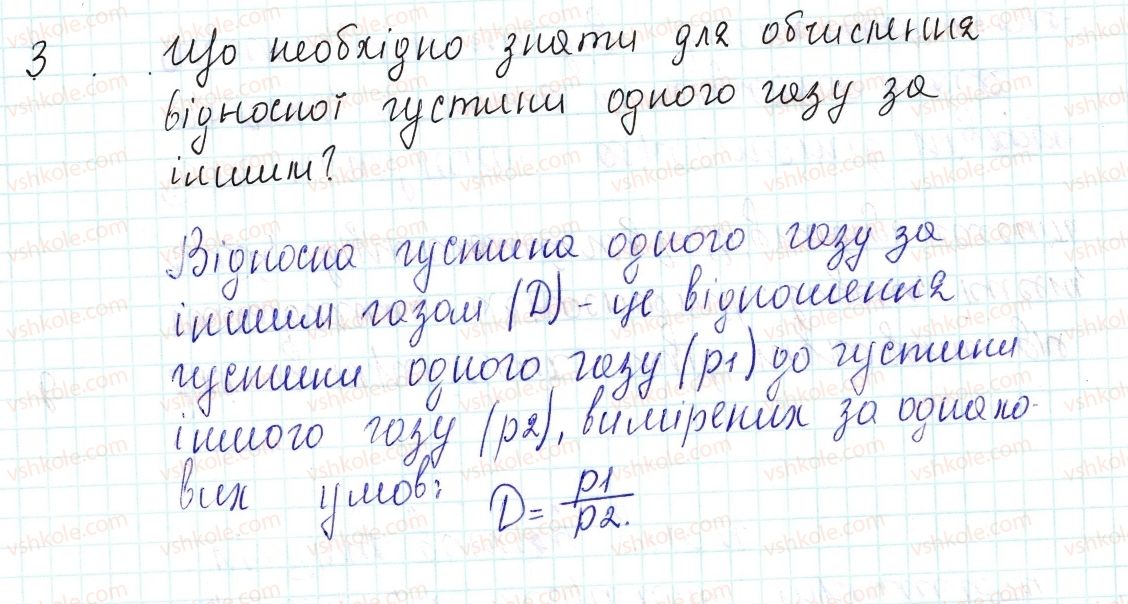 3 Що необхідно знати для обчислення
відносної густини одного газу за
іншим?
Відносна густина одного газу за
іншим газом (D) - це відношення
густини одного газу (p1) до густини
іншого газу (p2), вимірених за однако-
вих умов: D = p1/p2.